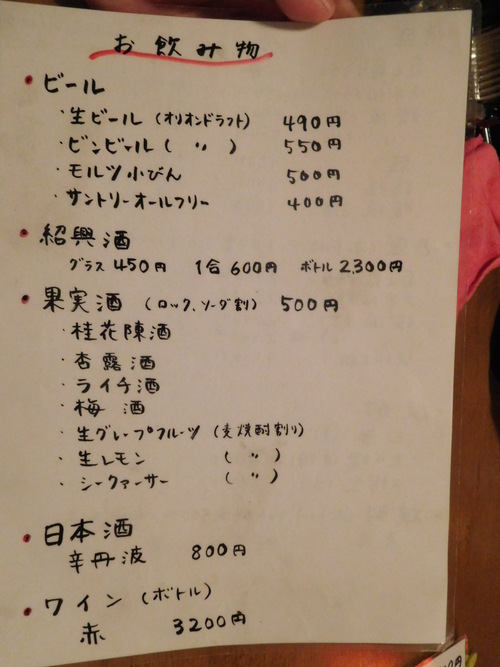 お飲み物
・ビール
・生ビール (オリオンドラフト) 490円
・ビンビール ( 〃 ) 550円
・モルツ小びん 500円
・サントリーオールフリー 400円
・紹興酒
グラス 450円 1合 600円 ボトル 2,300円
・果実酒 (ロック、ソーダ割) 500円
・桂花陳酒
・杏露酒
・ライチ酒
・梅 酒
・生グレープフルーツ (麦焼酎割り)
・生レモン ( 〃 )
・シークァーサー ( 〃 )
・日本酒
辛丹波 800円
・ワイン (ボトル)
赤 3200円